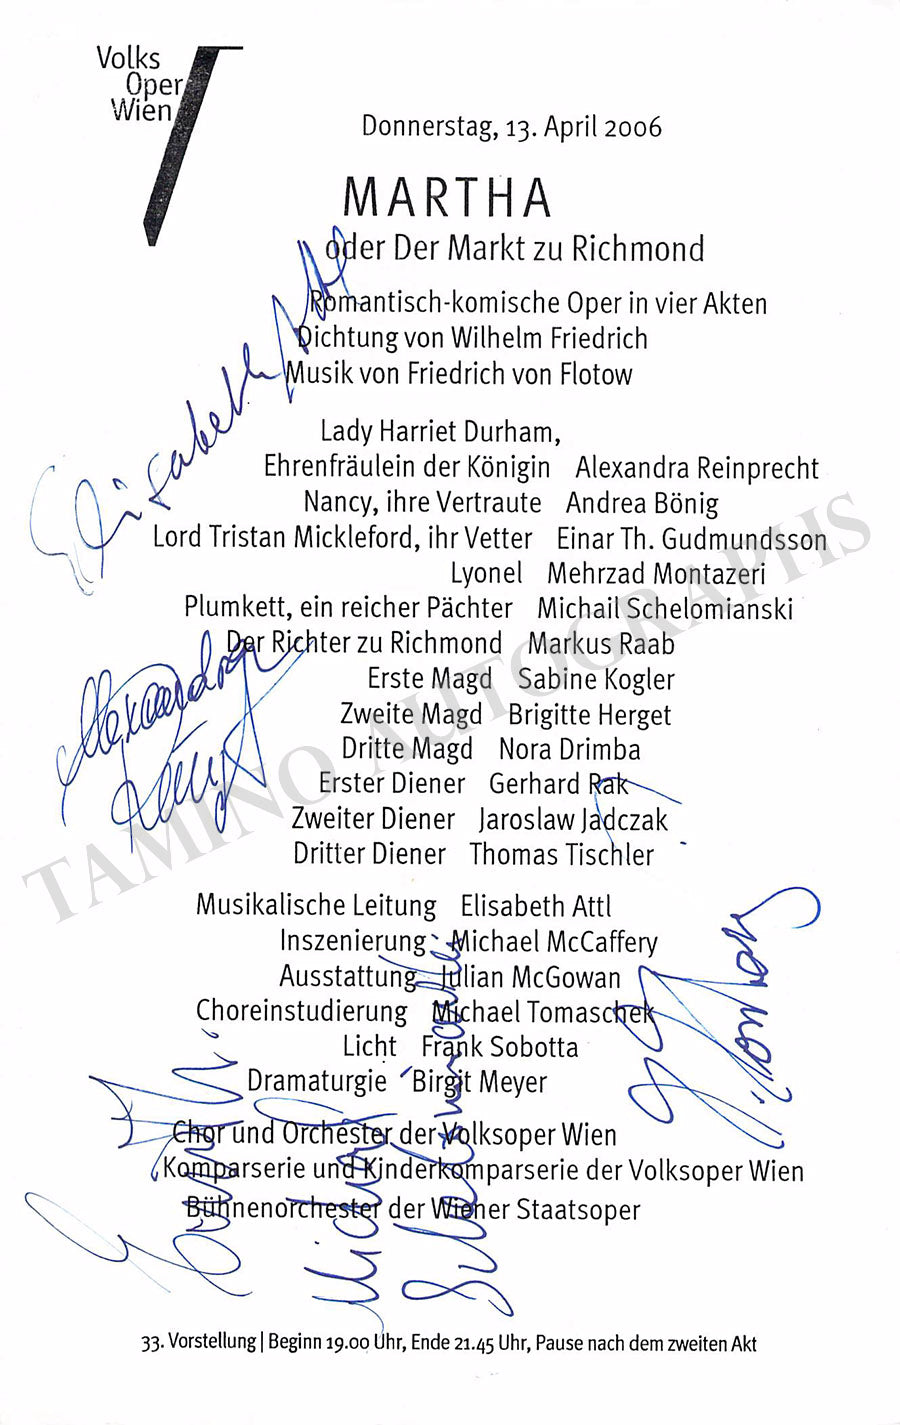 Volks
Oper
Wien
Donnerstag, 13. April 2006
MARTHA
oder Der Markt zu Richmond
Romantisch-komische Oper in vier Akten
Dichtung von Wilhelm Friedrich
Musik von Friedrich von Flotow
Lady Harriet Durham,
Ehrenfräulein der Königin Alexandra Reinprecht
Nancy, ihre Vertraute Andrea Bönig
Lord Tristan Mickleford, ihr Vetter Einar Th. Gudmundsson
Lyonel Mehrzad Montazeri
Plumkett, ein reicher Pächter Michail Schelomianski
Der Richter zu Richmond Markus Raab
Erste Magd Sabine Kogler
Zweite Magd Brigitte Herget
Dritte Magd Nora Drimba
Erster Diener Gerhard Rak
Zweiter Diener Jaroslaw Jadczak
Dritter Diener Thomas Tischler
Musikalische Leitung Elisabeth Attl
Inszenierung Michael McCaffery
Ausstattung Julian McGowan
Choreinstudierung Michael Tomaschek
Licht Frank Sobotta
Dramaturgie Birgit Meyer
Chor und Orchester der Volksoper Wien
Komparserie und Kinderkomparserie der Volksoper Wien
Bühnenorchester der Wiener Staatsoper
33. Vorstellung | Beginn 19.00 Uhr, Ende 21.45 Uhr, Pause nach dem zweiten Akt
Elisabeth Attl
Alexandra
TAMINO AUTOGRAPHS